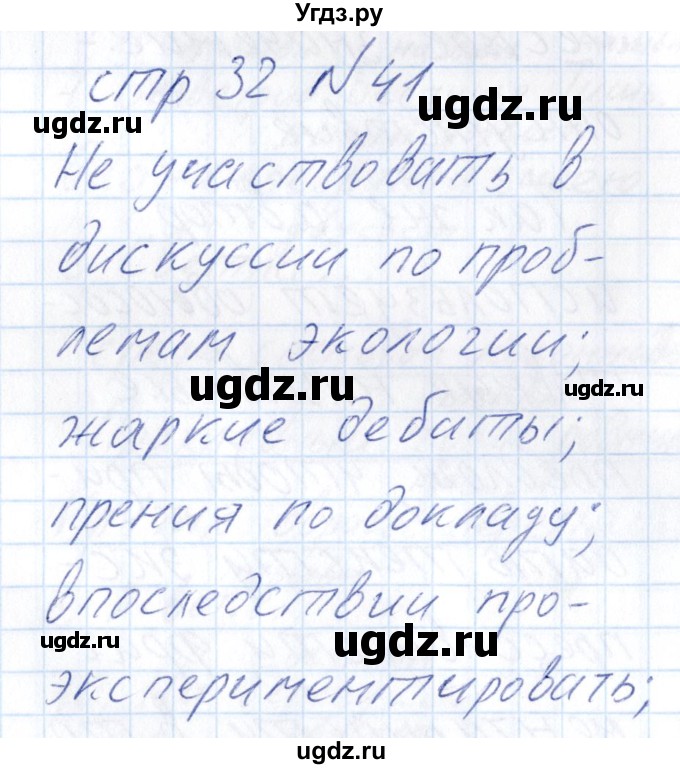 Угдз.ру
стр 32 №41
ugdz.ru
ugdz.ru
Не участвовать в
дискуссии по проб-
лемам экологии;
ugdz.ru
ugdz.ru
жаркие дебаты;
прения по докладу;
впоследствии про-
ugdz.ru
ugdz.ru
экспериментировать;
ugdz.ru